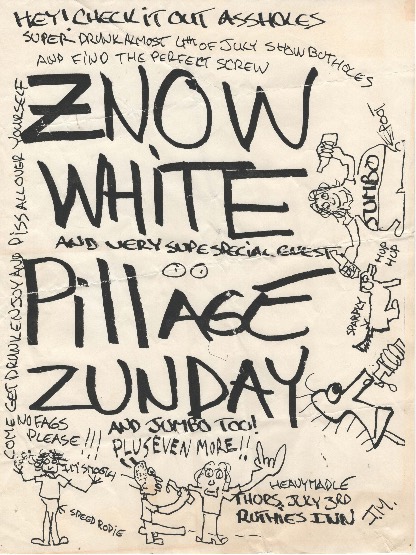 HEY! CHECK IT OUT ASSHOLES
SUPER DRUNK ALMOST 4TH OF JULY SHOW BUTHOLES
AND FIND THE PERFECT SCREW
ZNOW
WHiTE
AND VERY SUPE SPECIAL GUEST
PillAGE
ZUNDAY
AND JUMBO TOO!
PLUS EVEN MORE!!
COME GET DRUNK ENJOY AND PISS ALL OVER YOURSELF
NO FAGS
PLEASE!!!
SPEED RODIE
JUMBO
FOOT
HUP
HUP
SPARKLY
HEAVY MADLE
THORS, JULY 3RD
RUTHIES INN
J.M.